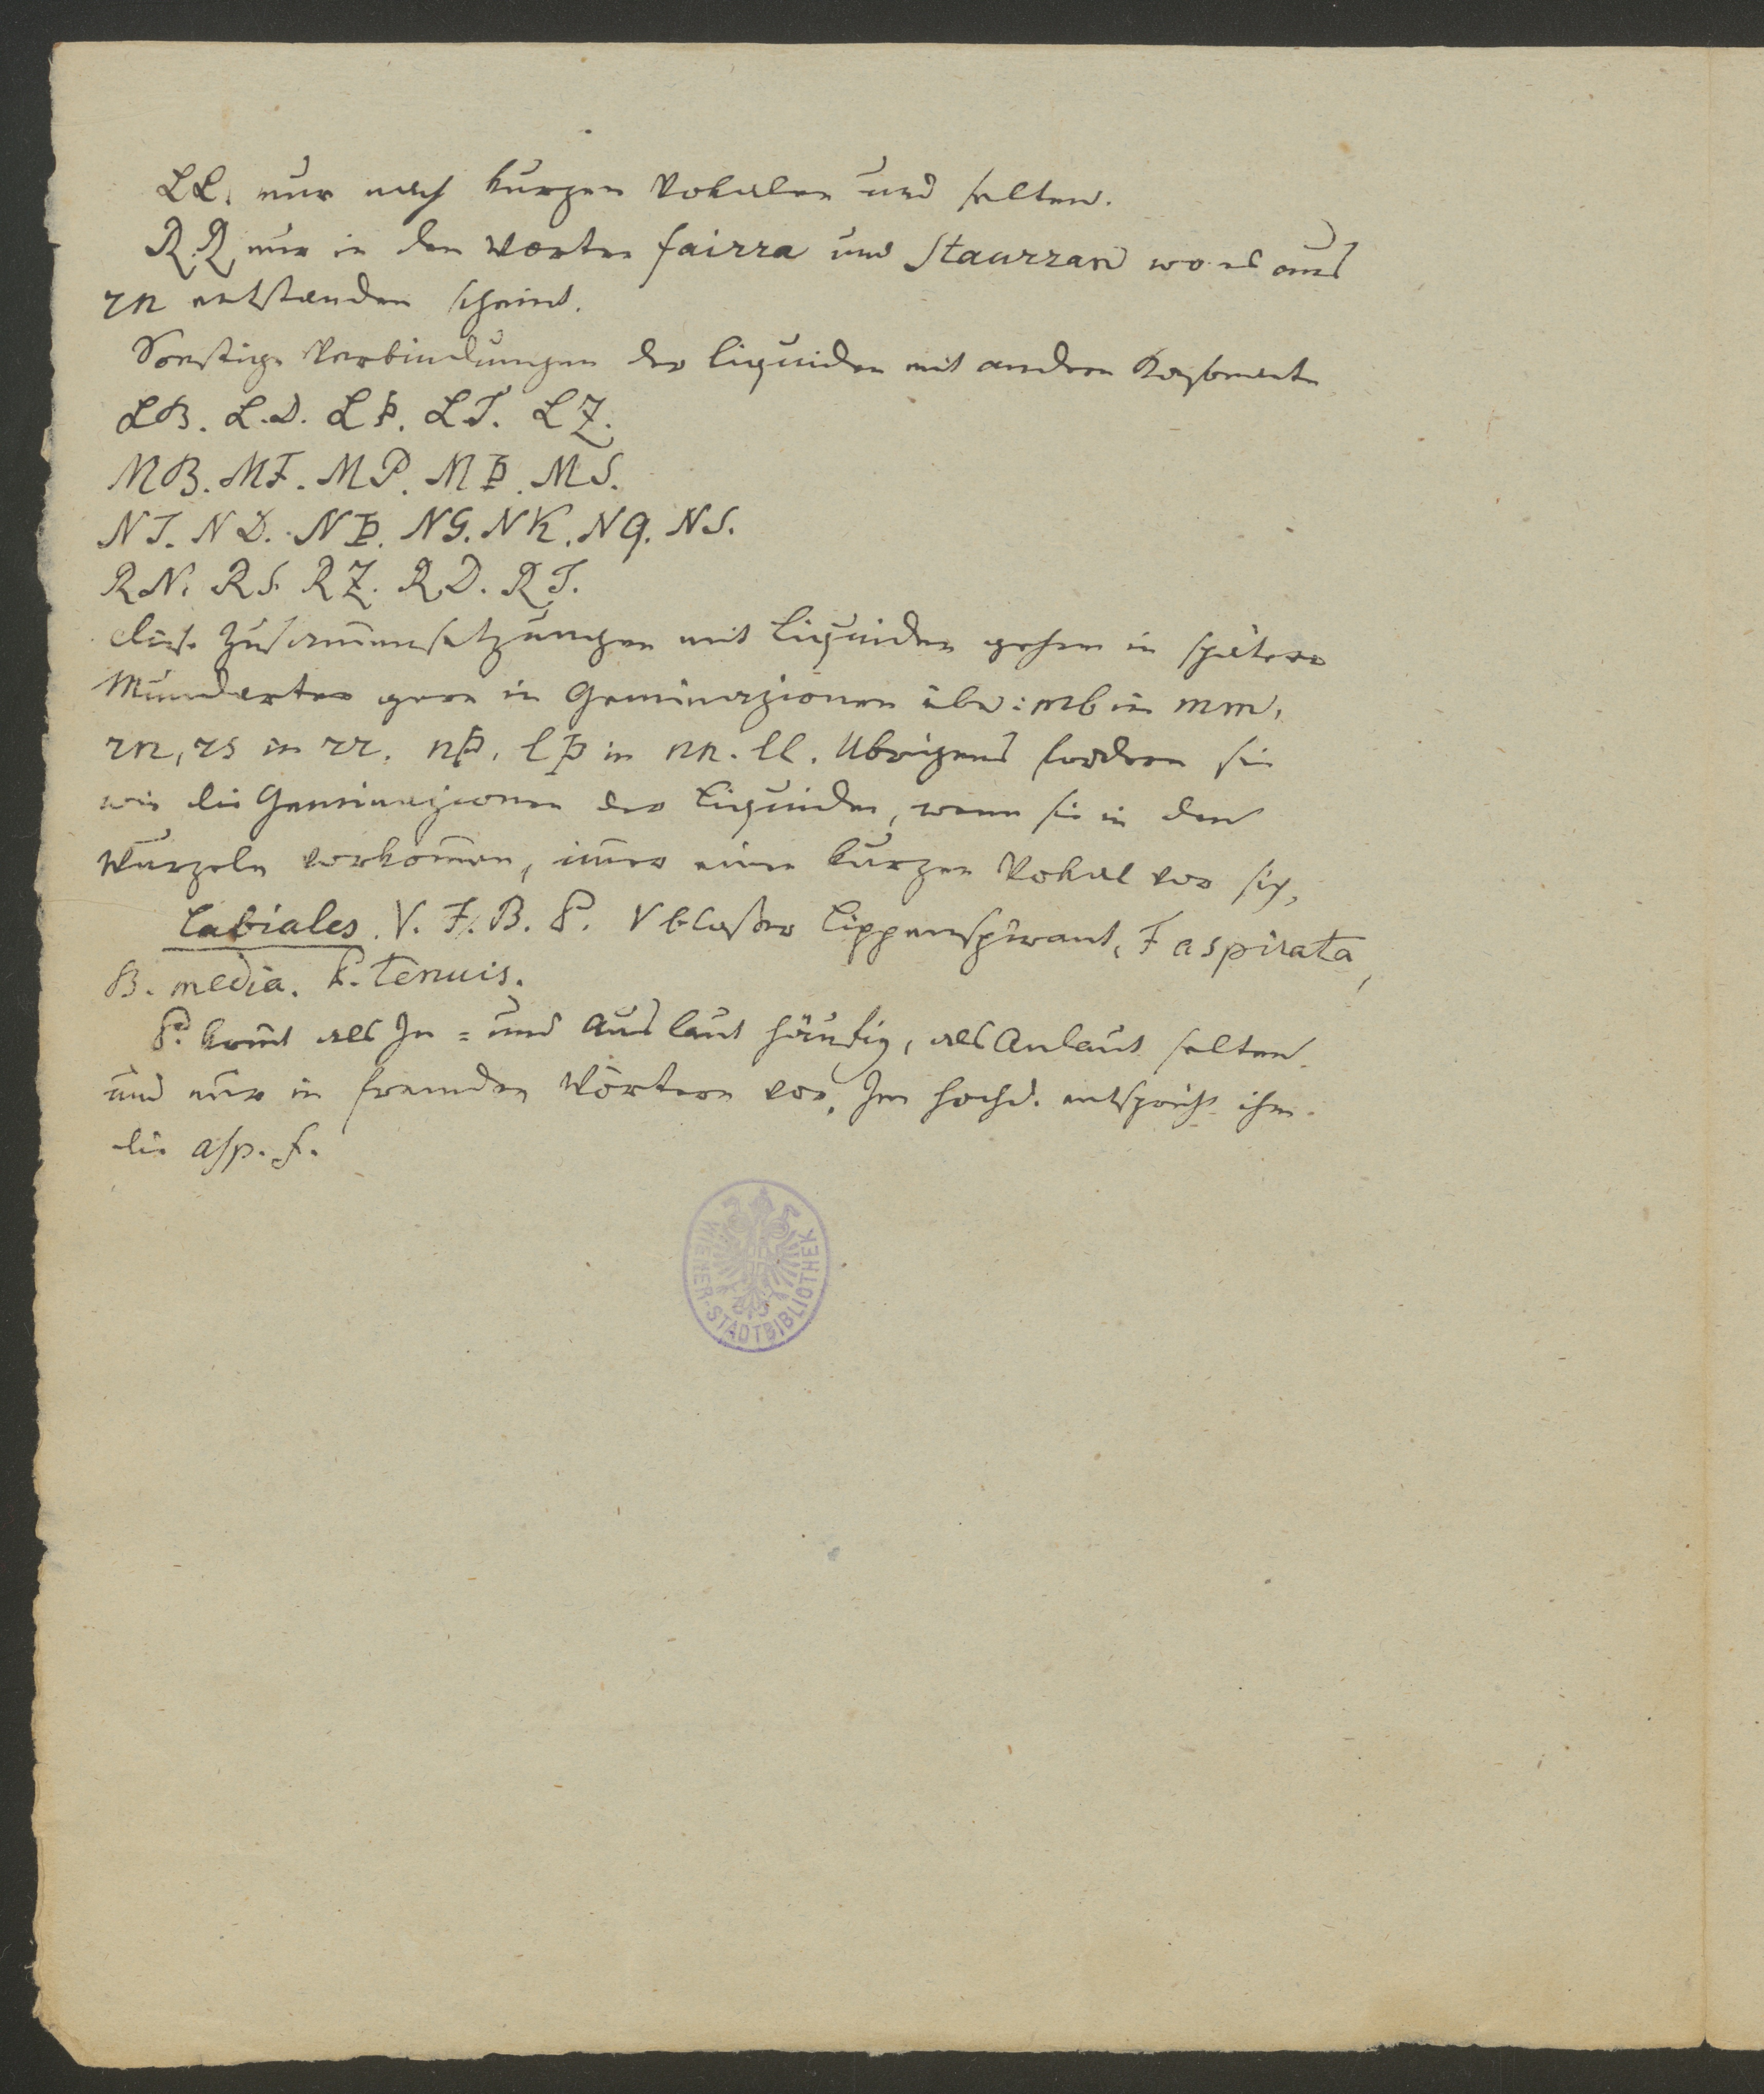 LL. nur nach kurzen Vokalen und selten.
RR nur in den Worten fairra und staurran wo es aus
rn entstanden scheint.
Sonstige Verbindungen der liquiden mit andern Consonante
LB. L.D. LÞ. LT. LZ.
MB. MF. MP. MÞ. MS.
NT. ND. NÞ. NG. NK. NQ. NS.
RN. RS. RZ. RD. RT.
diese Zusam̅ensetzungen mit liquiden gehen in spätere
Mundarten gern in Geminazionen über: mb in mm,
rn, rs in rr. nþ, lþ in nn. ll. Ubrigens fordern sie
wie die Geminazionen der liquiden, wenn sie in den
Wurzeln vorkom̅en, im̅er einen kurzen Vokal vor sich,
Labiales. V. F. B. P. V bloßer Lippenspirant, F aspirata,
B. media. P. tenuis.
P. kom̅t als In- und Auslaut häufig, als Anlaut selten
und nur in fremden Wörtern vor. Im hochd. entspricht ihm
die asp. f.
WIENER-STADTBIBLIOTHEK